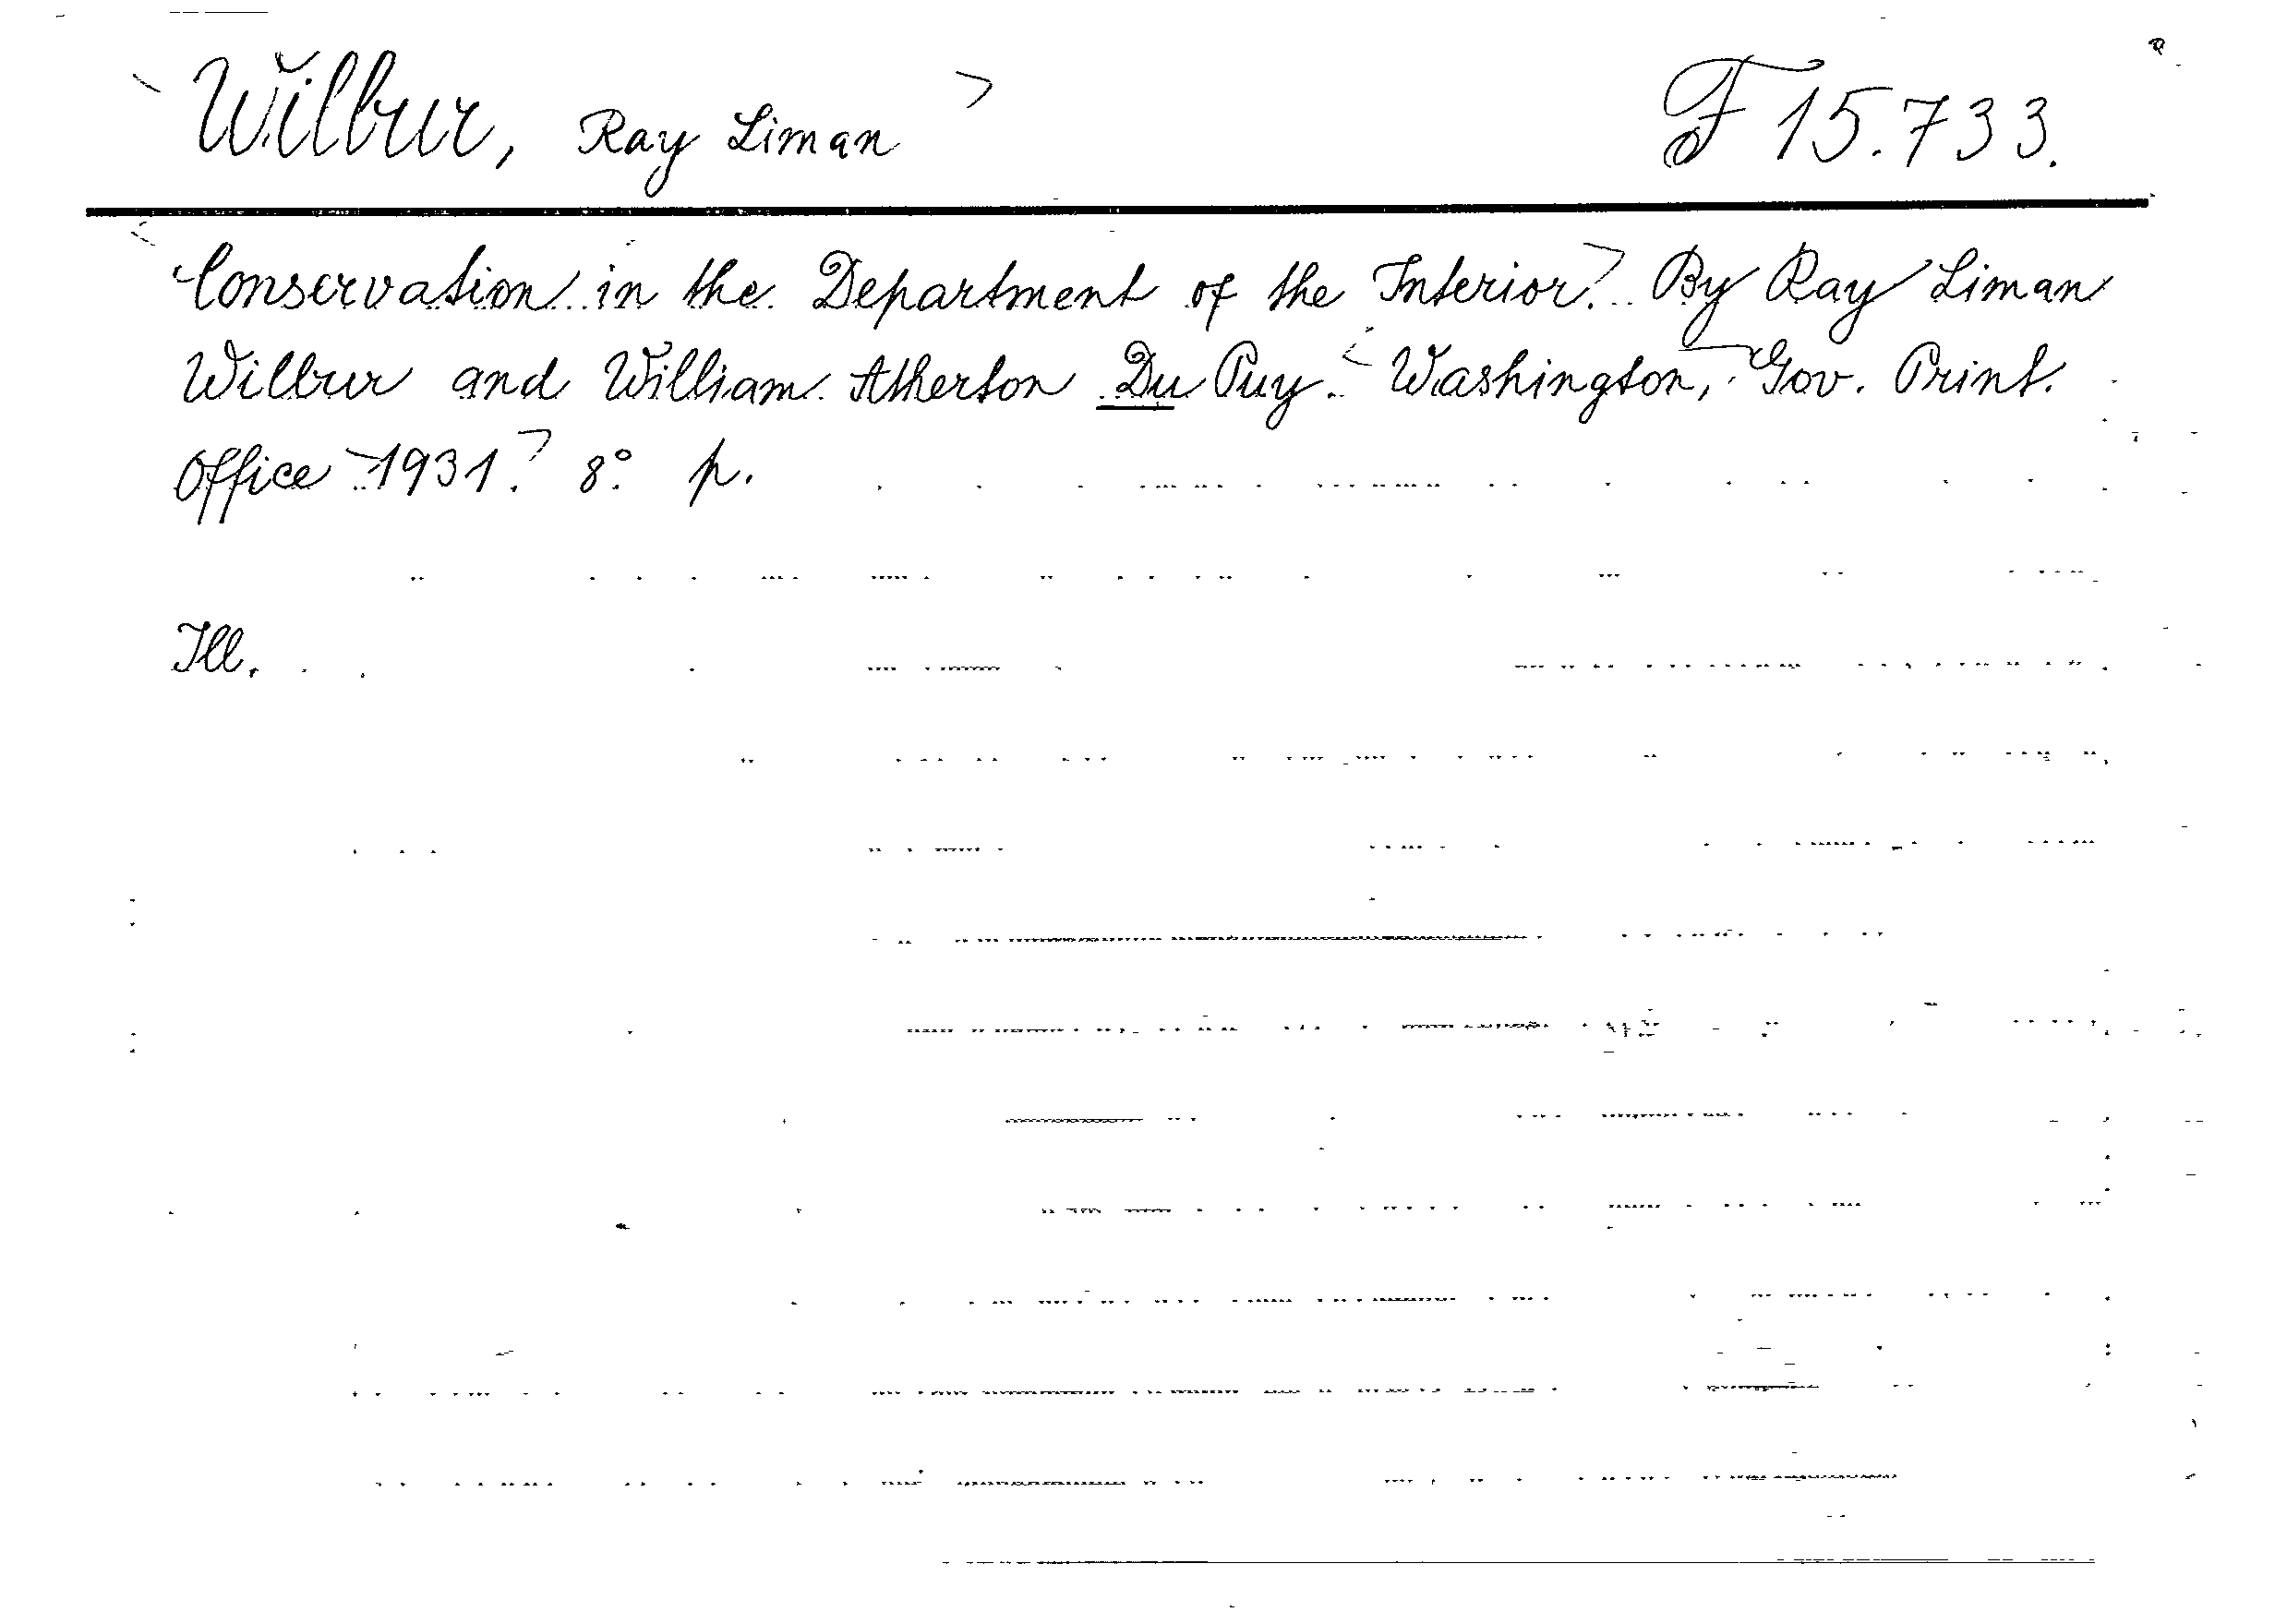 Wilbur, Ray Liman F 15.733.
Conservation in the Department of the Interior. By Ray Liman
Wilbur and William Atherton Du Puy. Washington, Gov. Print.
Office 1931. 8° p.
Ill.